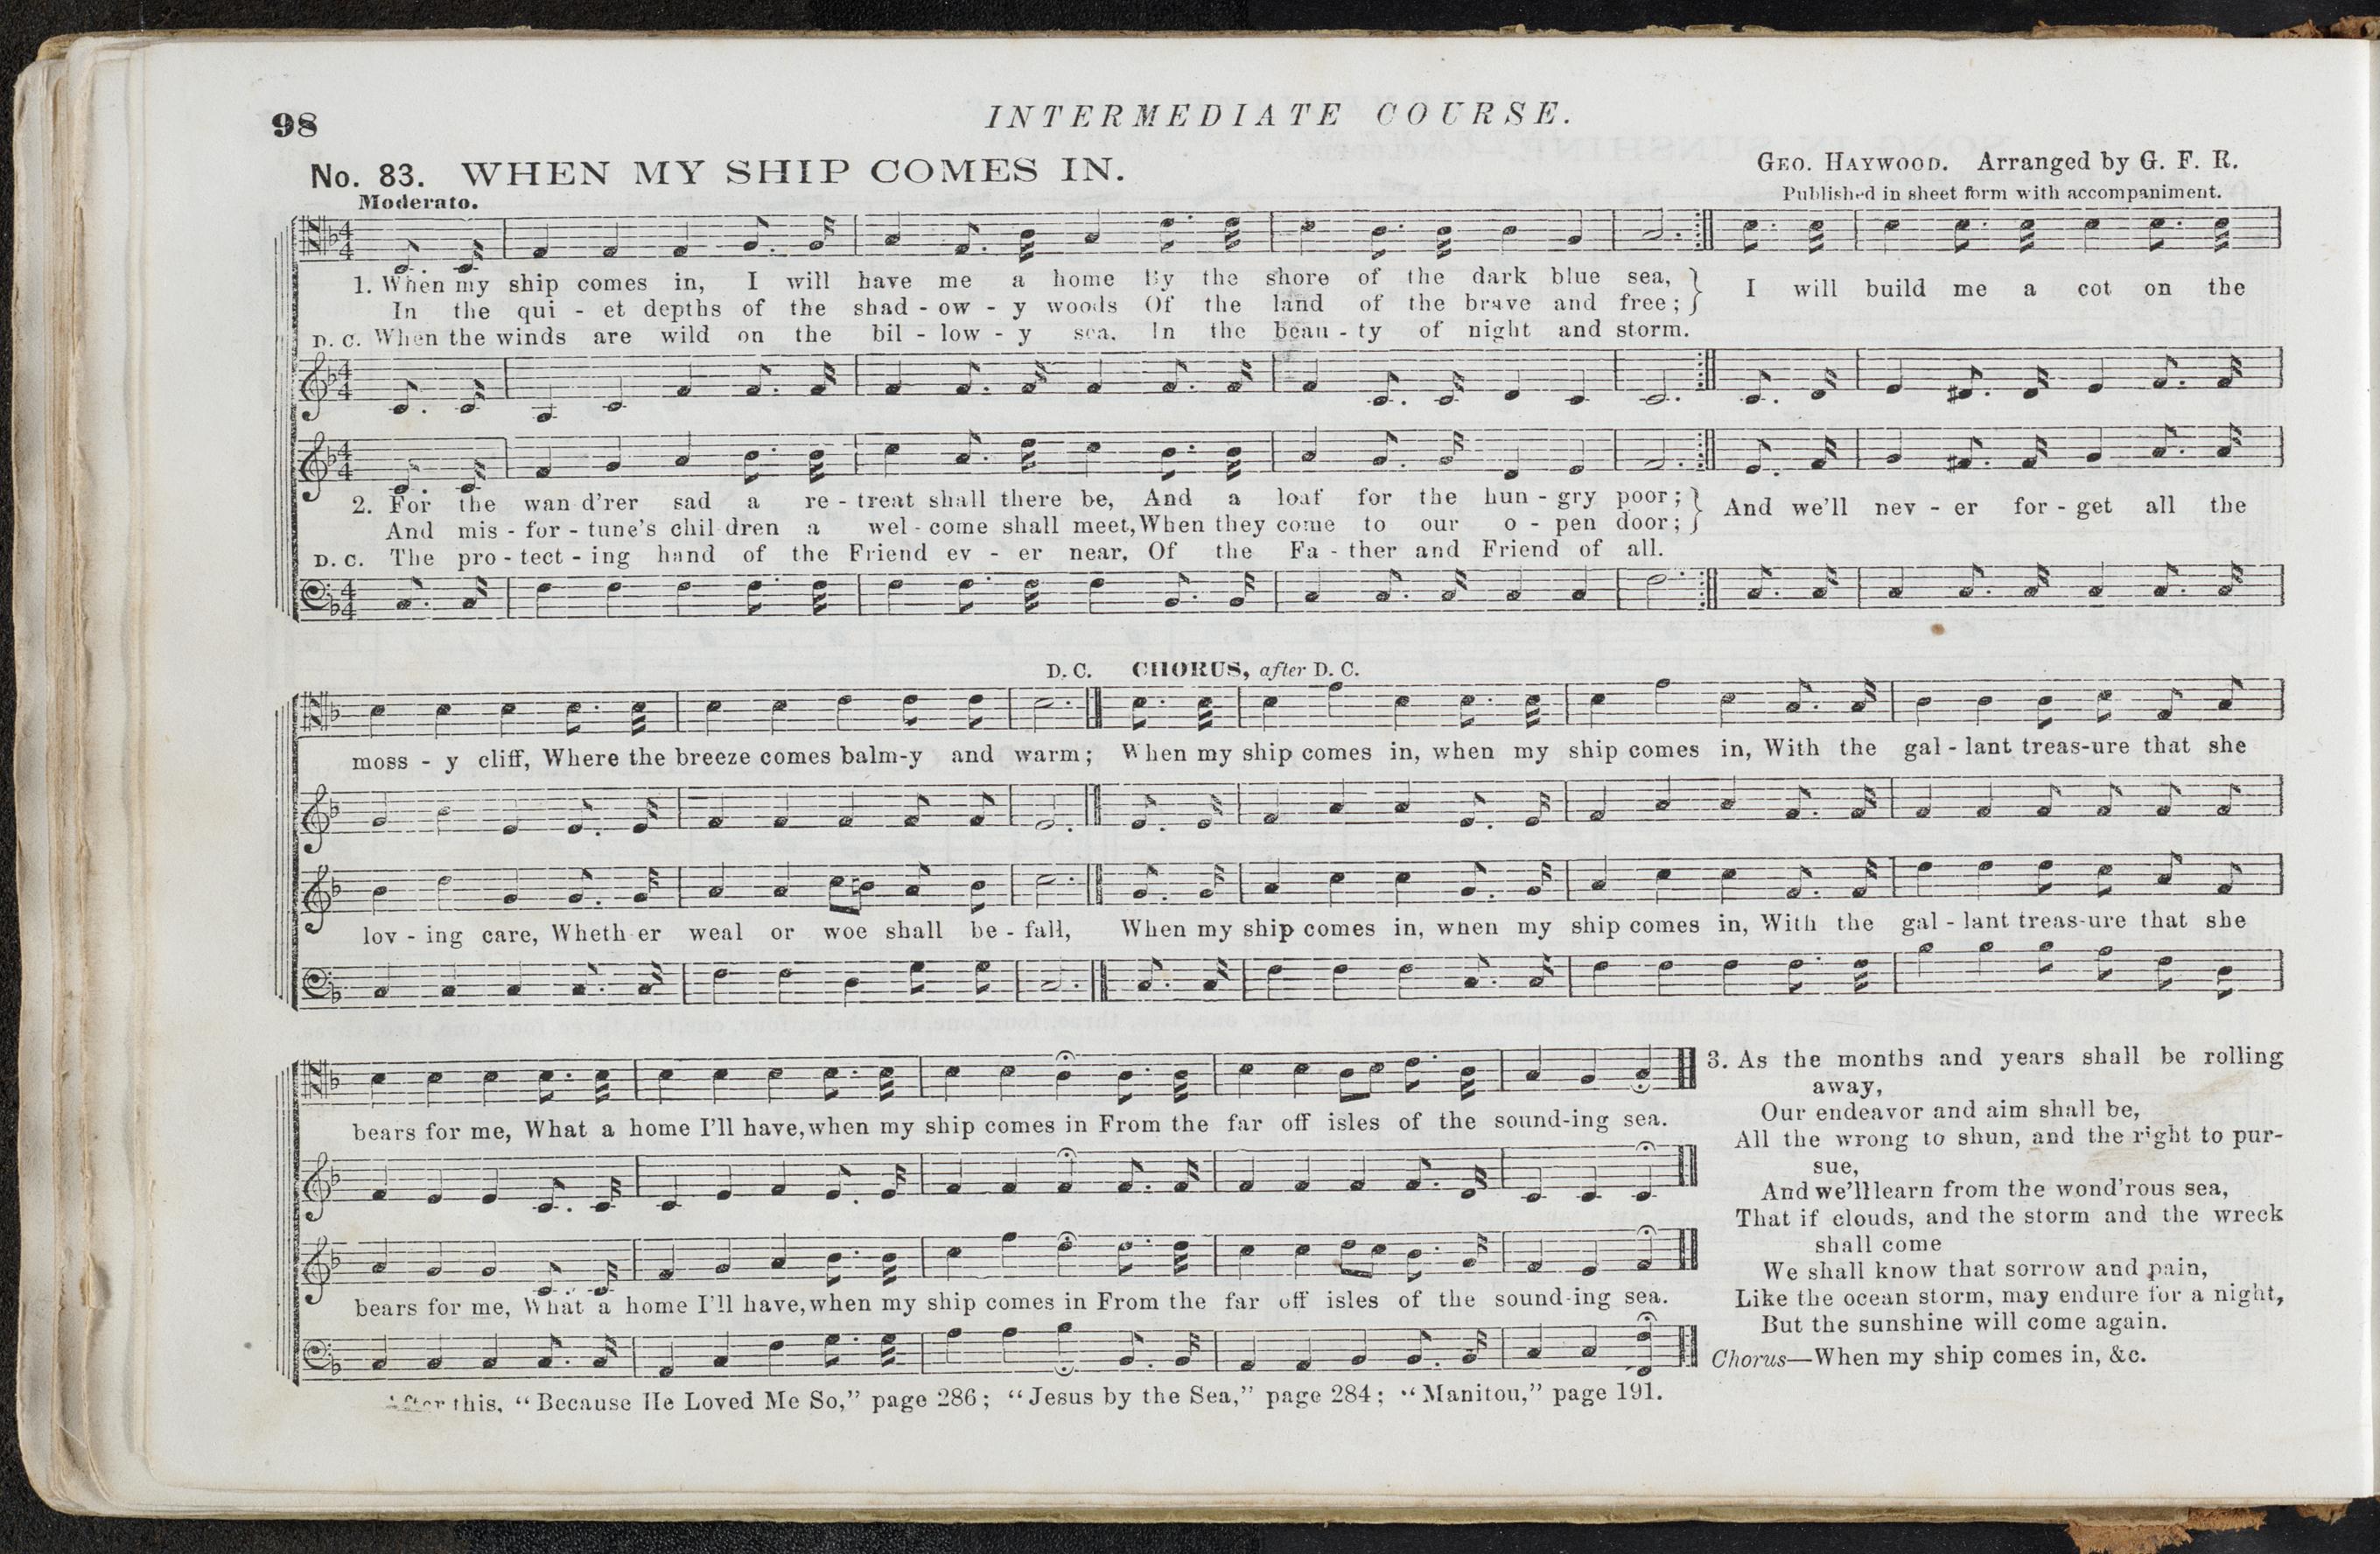 98
INTERMEDIATE COURSE.
No. 83. WHEN MY SHIP COMES IN.
GEO. HAYWOOD. Arranged by G. F. R.
Published in sheet form with accompaniment.
Moderato.
1. When my ship comes in, I will have me a home By the shore of the dark blue sea, } I will build me a cot on the
In the qui - et depths of the shad - ow - y woods Of the land of the brave and free; }
D. C. When the winds are wild on the bil - low - y sea. In the beau - ty of night and storm.
2. For the wan d'rer sad a re - treat shall there be, And a loaf for the hun - gry poor; } And we'll nev - er for - get all the
And mis - for - tune's chil dren a wel - come shall meet, When they come to our o - pen door; }
D. C. The pro - tect - ing hand of the Friend ev - er near, Of the Fa - ther and Friend of all.
D. C. CHORUS, after D. C.
moss - y cliff, Where the breeze comes balm-y and warm; When my ship comes in, when my ship comes in, With the gal - lant treas-ure that she
lov - ing care, Wheth er weal or woe shall be - fall, When my ship comes in, when my ship comes in, With the gal - lant treas-ure that she
bears for me, What a home I'll have, when my ship comes in From the far off isles of the sound-ing sea.
bears for me, What a home I'll have, when my ship comes in From the far off isles of the sound-ing sea.
3. As the months and years shall be rolling
away,
Our endeavor and aim shall be,
All the wrong to shun, and the right to pur-
sue,
And we'll learn from the wond'rous sea,
That if clouds, and the storm and the wreck
shall come
We shall know that sorrow and pain,
Like the ocean storm, may endure for a night,
But the sunshine will come again.
Chorus—When my ship comes in, &c.
After this, "Because He Loved Me So," page 286; "Jesus by the Sea," page 284; "Manitou," page 191.